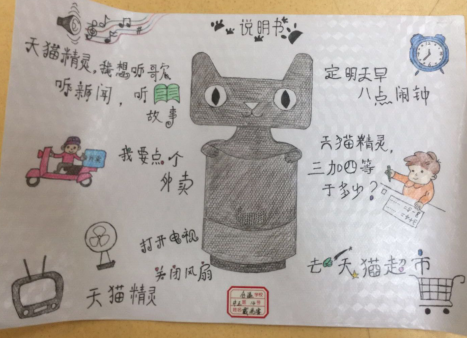 说明书
天猫精灵,我想听歌
听新闻,听
故事
定明天早
八点闹钟
我要点个
外卖
天猫精灵,
三加四等
于多少?
打开电视
关闭风扇
天猫精灵
去天猫超市